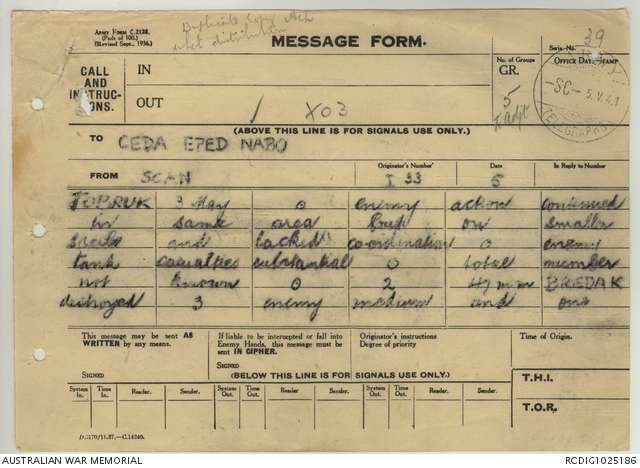 Army Form C.2128.
(Pads of 100.)
(Revised Sept., 1936.)
Duplicate copy
distribution
MESSAGE FORM.
Serial No. 39
CALL
AND
INSTRUC-
ONS.
IN
OUT
X03
No. of Groups
GR.
5
OFFICE DATE STAMP
-SC- 5.V.41
TELEGRAPHS
(ABOVE THIS LINE IS FOR SIGNALS USE ONLY.)
TO CEDA EPED NABO
FROM Originator's Number I 33 Date 5 In Reply to Number
TOBRUK 3 May O enemy action continued
in same area but on smaller
scale and lacked co-ordination O enemy
tank casualties substantial O total number
not known O 2 47 mm BREDA K
destroyed 3 enemy medium and one
This message may be sent AS
WRITTEN by any means.
SIGNED
If liable to be intercepted or fall into
Enemy Hands, this message must be
sent IN CIPHER.
SIGNED
Originator's instructions
Degree of priority
Time of Origin.
(BELOW THIS LINE IS FOR SIGNALS USE ONLY.)
T.H.I.
System In. Time In. Reader. Sender. System Out. Time Out. Reader. Sender. System Out. Time Out. Reader. Sender.
T.O.R.
AUSTRALIAN WAR MEMORIAL
RCDIG1025186